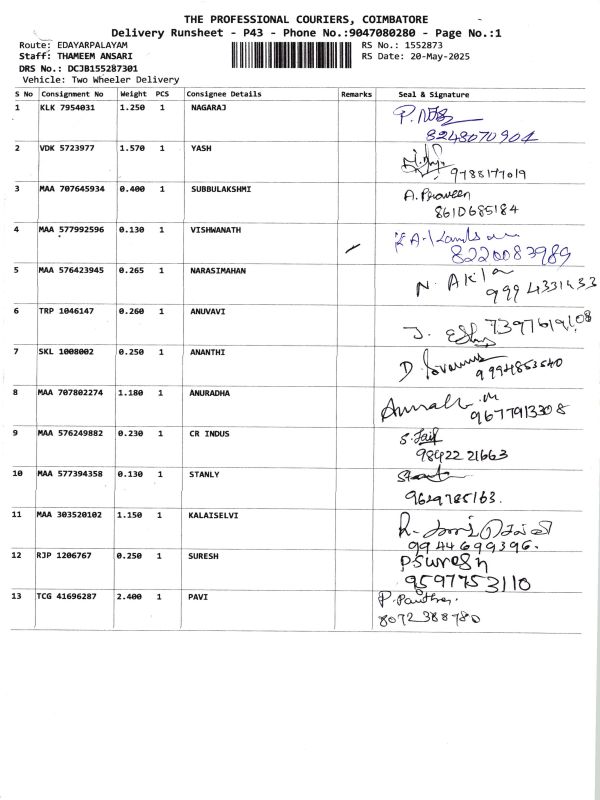 THE PROFESSIONAL COURIERS, COIMBATORE
Delivery Runsheet - P43 - Phone No.:9047080280 - Page No.:1
Route: EDAYARPALAYAM RS No.: 1552873
Staff: THAMEEM ANSARI RS Date: 20-May-2025
DRS No.: DCJB155287301
Vehicle: Two Wheeler Delivery
S No Consignment No Weight PCS Consignee Details Remarks Seal & Signature
1 KLK 7954031 1.250 1 NAGARAJ
8248070904
2 VDK 5723977 1.570 1 YASH
9788177019
3 MAA 707645934 0.400 1 SUBBULAKSHMI A. Praveen
8610685184
4 MAA 577992596 0.130 1 VISHWANATH
8220083989
5 MAA 576423945 0.265 1 NARASIMAHAN N. Akila
9994331433
6 TRP 1046147 0.260 1 ANUVAVI J. 7397619108
7 SKL 1008002 0.250 1 ANANTHI D.
9994853540
8 MAA 707802274 1.180 1 ANURADHA
9677913308
9 MAA 576249882 0.230 1 CR INDUS S.
98422 21663
10 MAA 577394358 0.130 1 STANLY
9629785163.
11 MAA 303520102 1.150 1 KALAISELVI
9944699396.
12 RJP 1206767 0.250 1 SURESH P Suresh
9597753110
13 TCG 41696287 2.400 1 PAVI P.
8072388780